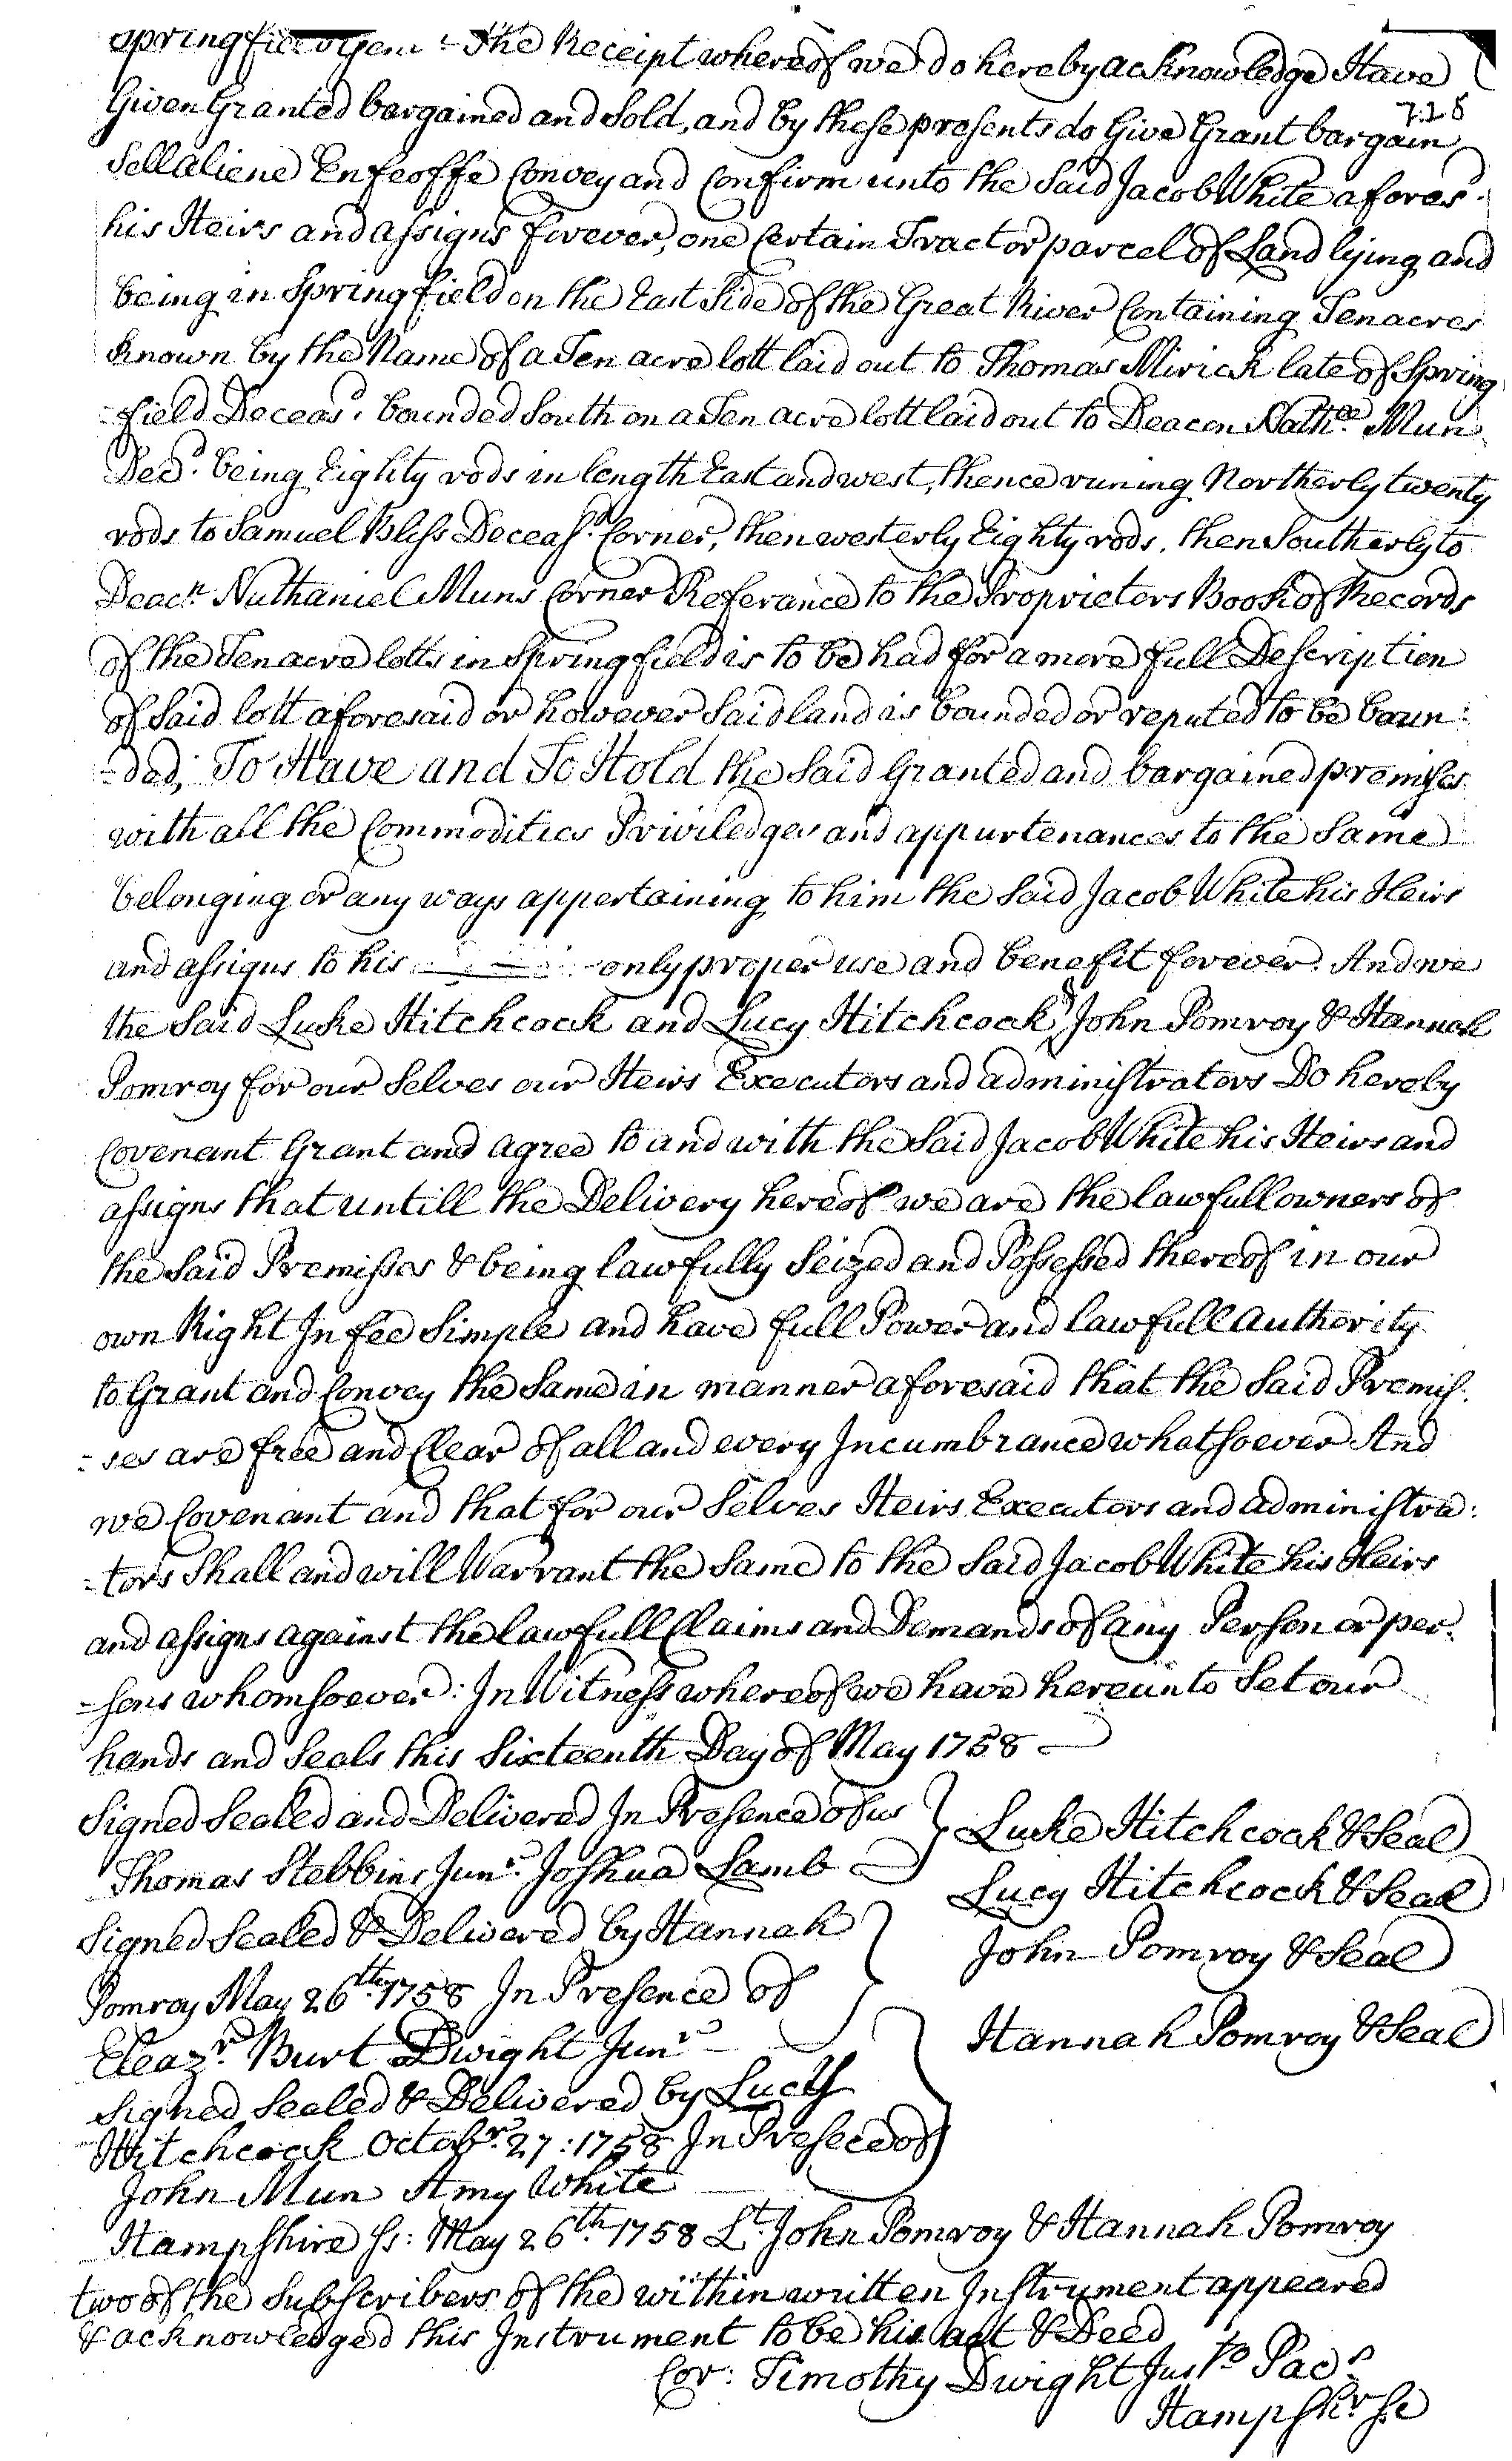 Springfield Gent - The Receipt whereof we do hereby acknowledge Have
728
Given Granted bargained and Sold, and by these presents do Give Grant bargain
Sell aliene Enfeoffe Convey and Confirm unto the Said Jacob White afores.d
his Heirs and assigns forever, one Certain Tract or parcel of Land lying and
being in Springfield on the East Side of the Great River Containing Ten acres
Known by the Name of a Ten acre lott laid out to Thomas Mirick late of Spring
-field Deceas.d bounded South on a Ten acre lott laid out to Deacon Nath.ll Mun
Dec.d being Eighty rods in length East and west, thence runing Northerly twenty
rods to Samuel Bliss Deceas.d Corner, then westerly Eighty rods, then Southerly to
Deac.n Nathaniel Muns Corner Referance to the Proprietors Book of Records
of the Ten acre lotts in Springfield is to be had for a more full Description
of Said lott aforesaid or however Said land is bounded or reputed to be boun:
-ded; To Have and To Hold the Said Granted and bargained premises
with all the Commodities Priviledges and appurtenances to the Same
belonging or any ways appertaining to him the Said Jacob White his Heirs
and assigns to his only proper use and benefit forever. And we
the Said Luke Hitchcock and Lucy Hitchcock & John Pomroy & Hannah
Pomroy for our Selves our Heirs Executors and administrators Do hereby
Covenant Grant and agree to and with the Said Jacob White his Heirs and
assigns that untill the Delivery hereof we are the lawfull owners of
the Said Premisses & being lawfully Seized and Possessed thereof in our
own Right In fee Simple and have full Power and lawfull authority
to Grant and Convey the Same in manner aforesaid that the Said Premis:
-ses are free and Clear of all and every Incumbrance whatsoever And
we Covenant and that for our Selves Heirs Executors and administra:
-tors Shall and will Warrant the Same to the Said Jacob White his Heirs
and assigns against the lawfull Claims and Demands of any Person or per:
-sons whomsoever: In Witness whereof we have hereunto Set our
hands and Seals this Sixteenth Day of May 1758
Signed Sealed and Delivered In Presence of us
Thomas Stebbins Jun.r Joshua Lamb
Signed Sealed & Delivered by Hannah
Pomroy May 26th. 1758 In Presence of
Eleaz.r Burt Dwight Jun.r
Signed Sealed & Delivered by Lucy
Hitchcock Octob.r 27: 1758 In Presece of
John Mun Amy White
Luke Hitchcock & Seal
Lucy Hitchcock & Seal
John Pomroy & Seal
Hannah Pomroy & Seal
Hampshire ss: May 26th. 1758 L.t John Pomroy & Hannah Pomroy
two of the Subscribers of the within written Instrument appeared
& acknowledged this Instrument to be his act & Deed
Cor: Timothy Dwight Just.o Pac.s
Hampsh.r ss